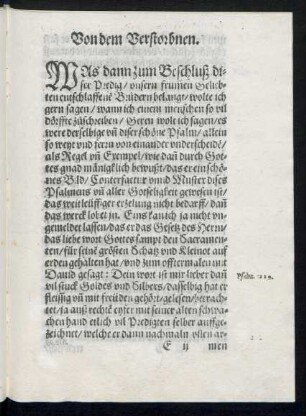 Von dem Verstorbnen.
WAs dann zum Beschluß di-
ser Predig / vnsern frumen Gelieb-
ten entschlaffenē Brüdern belangt / wolte ich
gern sagen / wann ich einem menschen so vil
dörffte zůschreiben / Geren wolt ich sagen / es
were derselbige vñ diser schöne Psalm / allein
so weyt vnd ferrn von einander vnderscheidē /
als Regel vñ Exempel / wie dañ durch Got-
tes gnad mänigklich bewust / das er ein schö-
nes Bild / Conterfactur vnnd Muster dises
Psalmens vñ aller Gotseligkeit gewesen ist /
das weitleüffiger erzelung nicht bedarff / dañ
das werck lobet jn. Eins kan ich ja nicht vn-
gemeldet lassen / das er das Gesetz des Herrn /
das liebe wort Gottes sampt den Sacramen-
ten / für seine grösten Schatz vnd Kleinot auff
erden gehalten hat / vnd zum offtermalen mit
Dauid gesagt: Dein wort ist mir lieber dañ
vil stuck Goldes vnd Silbers / dasselbig hat er
fleissig vñ mit freüden gehört / gelesen / betrach-
tet / ja auß rechtē eyfer mit seiner alten schwa-
chen hand etlich vil Predigten selber auffge-
zeichnet / welche er dann nachmaln
Psalm. 119.
E ij
men